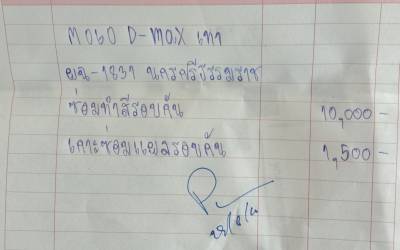 MObO D-max เทา
ผฉ-1837 นครศรีธรรมราช
ซ่อมทำสีรอบคัน 10,000-
เคาะซ่อมแผลรอบคัน 1,500-